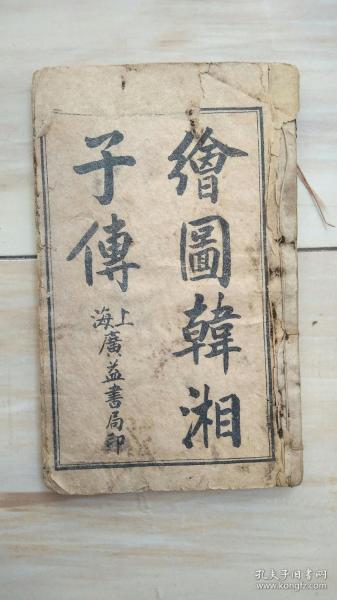 繪圖韓湘
子傳
上海廣益書局印
孔夫子旧书网
www.kongfz.com